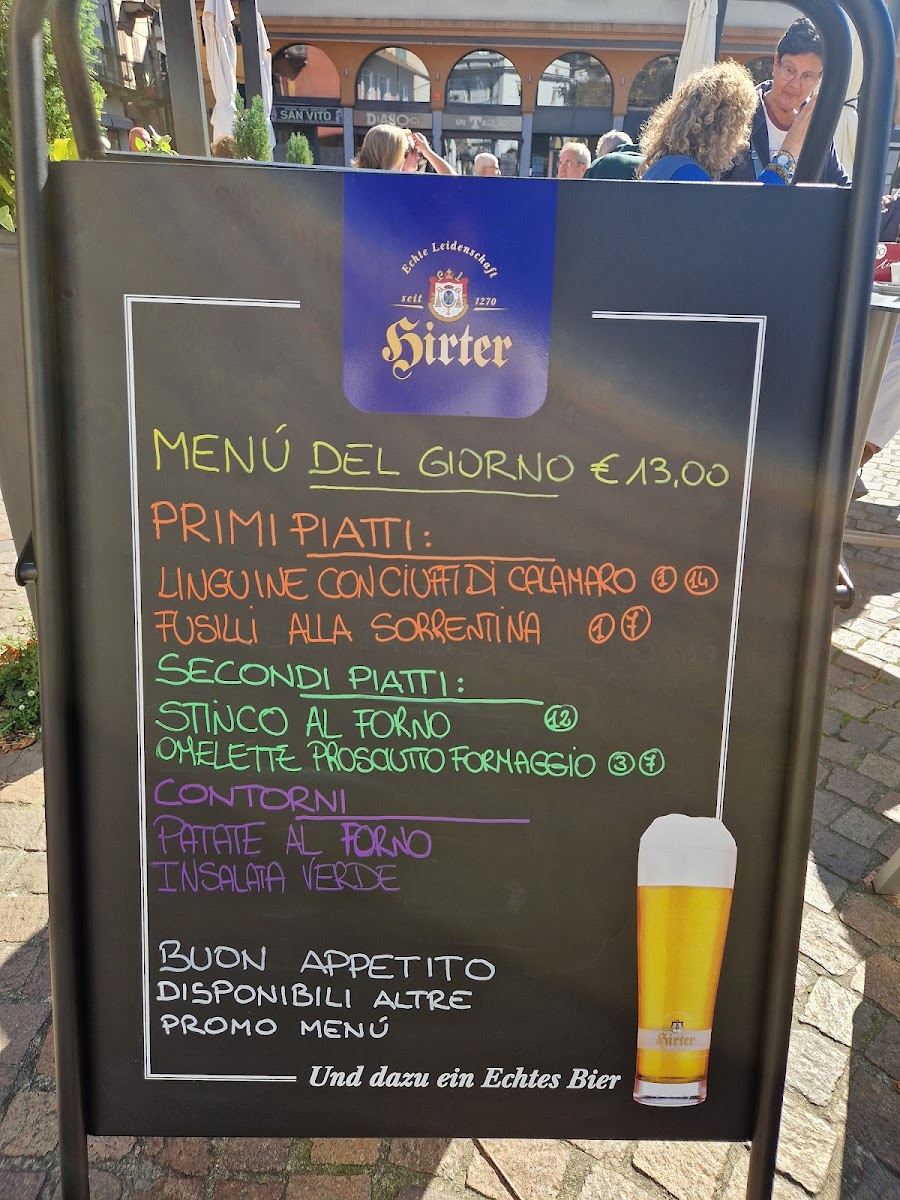 SAN VITO
DIANOCI
UN TAGLIO
Echte Leidenschaft
seit 1270
Hirter
MENÚ DEL GIORNO €13,00
PRIMI PIATTI:
LINGUINE CON CIUFFI DI CALAMARO 1 14
FUSILLI ALLA SORRENTINA 1 7
SECONDI PIATTI:
STINCO AL FORNO 12
OMELETTE PROSCIUTTO FORMAGGIO 3 7
CONTORNI
PATATE AL FORNO
INSALATA VERDE
BUON APPETITO
DISPONIBILI ALTRE
PROMO MENÚ
Hirter
Und dazu ein Echtes Bier